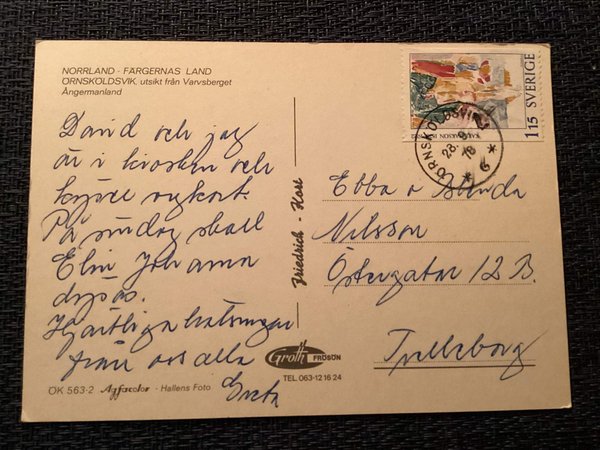 NORRLAND · FÄRGERNAS LAND
ÖRNSKÖLDSVIK, utsikt från Varvsberget
Ångermanland
David och jag
är i kiosken och
köper vykort.
På söndag skall
Elin Johanna
döpas.
Hjärtliga hälsningar
från oss alla
Greta
ÖK 563-2 Agfacolor · Hallens Foto
Friedrich - Host
Groth FRÖSÖN
TEL 063-12 16 24
1 15 SVERIGE
ÖRNSKÖLDSVIK 1
28 9
78
* 6 *
Ebba o Blenda
Nilsson
Östergatan 12 B.
Trelleborg